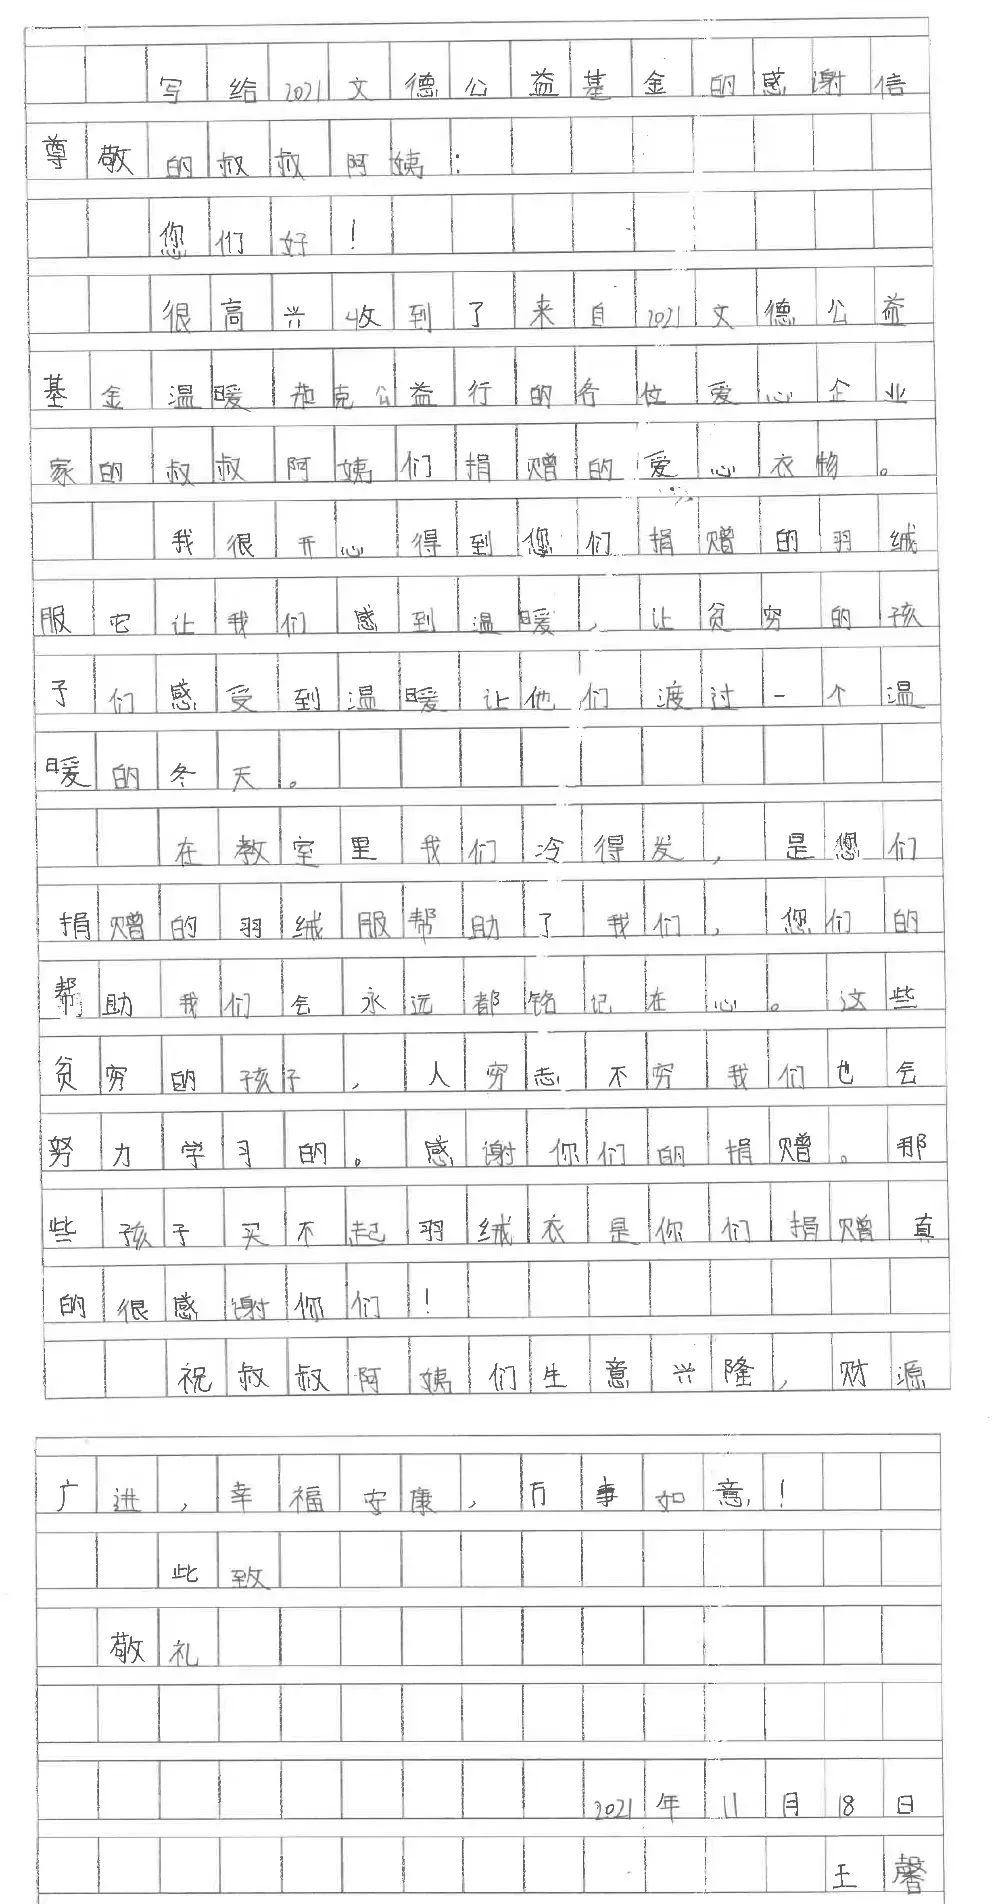 写给2021文德公益基金的感谢信
尊敬的叔叔阿姨：
您们好！
很高兴收到了来自2021文德公益
基金温暖茄克公益行的各位爱心企业
家的叔叔阿姨们捐赠的爱心衣物。
我很开心得到您们捐赠的羽绒
服它让我们感到温暖，让贫穷的孩
子们感受到温暖让他们渡过一个温
暖的冬天。
在教室里我们冷得发，是您们
捐赠的羽绒服帮助了我们，您们的
帮助我们会永远都铭记在心。这些
贫穷的孩子，人穷志不穷我们也会
努力学习的。感谢你们的捐赠。那
些孩子买不起羽绒衣是你们捐赠真
的很感谢你们！
祝叔叔阿姨们生意兴隆，财源
广进，幸福安康，万事如意！
此致
敬礼
2021年11月18日
王馨